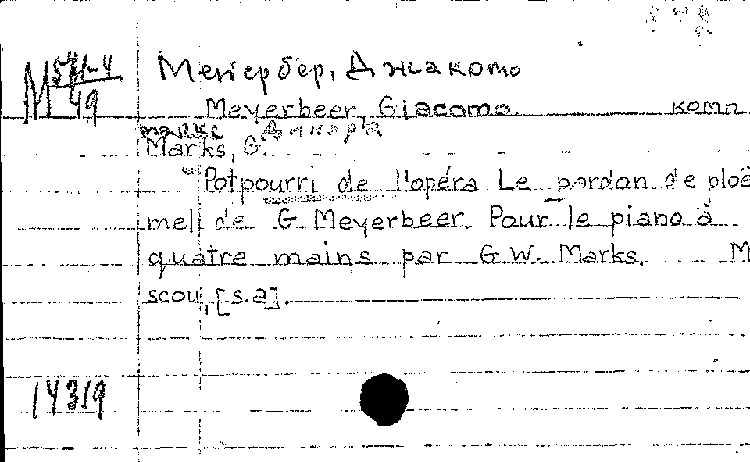 М 571-4
49
Мейербер, Джакомо
Meyerbeer, Giacomo. комп
маркс
Marks, G.
Potpourri de l'opéra Le pardon de ploë
mel de G. Meyerbeer. Pour le piano à
quatre mains par G. W. Marks. M
scou, [s.a].
14319